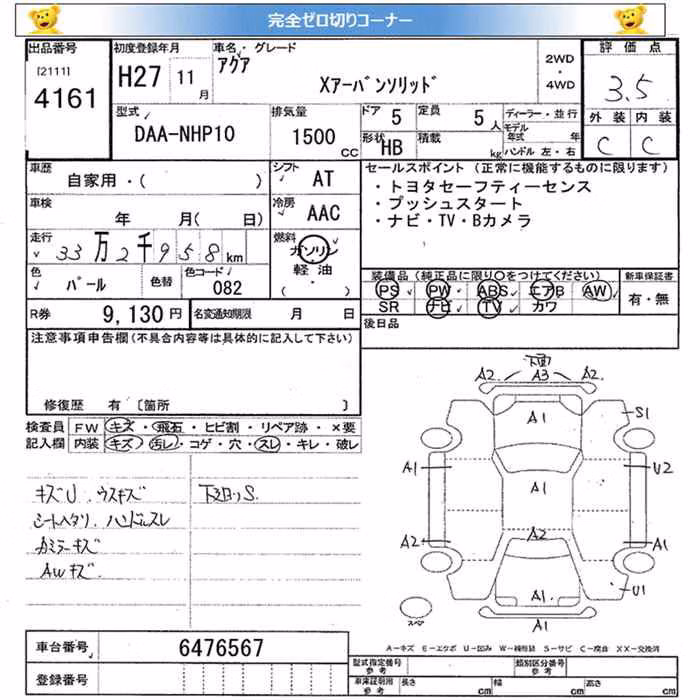 完全ゼロ切りコーナー
出品番号 [2111] 4161
初度登録年月 H27 11 月
車名・グレード アクア Xアーバンソリッド
2WD ・ 4WD
評価点 3.5
外装 内装
C C
型式 DAA-NHP10
排気量 1500 CC
ドア 5 定員 5 人
形状 HB 積載 kg
ディーラー・並行
モデル年式 年
ハンドル 左・右
車歴 自家用・( )
シフト AT
車検 年 月( 日)
冷房 AAC
走行 33万2千958km
燃料 ガソリン 軽油 ( ・ )
色 パール 色替 色コード 082
R券 9,130円 名変通知期限 月 日
セールスポイント (正常に機能するものに限ります)
・トヨタセーフティーセンス
・プッシュスタート
・ナビ・TV・Bカメラ
装備品(純正品に限り〇をつけてください) 新車保証書
PS PW ABS エアB AW 有・無
SR ナビ TV カワ
後日品
注意事項申告欄(不具合内容等は具体的に記入して下さい)
修復歴 有 〔箇所 〕
検査員 FW キズ・飛石・ヒビ割・リペア跡・×要
記入欄 内装 キズ・汚レ・コゲ・穴・スレ・キレ・破レ
キズU.ウスキズ 下廻りS.
シートヘタリ.ハンドルスレ
カミラーキズ
AWキズ
下部
A2. A3 A2.
A1 S1
A1 A1 U2
A2 A2 A1
A1 U1
スペア A1
A－キズ E－エクボ U－凹み W－補修跡 S－サビ C－腐食 XX－交換済
車台番号 6476567
登録番号
型式指定番号 参考 類別区分番号 参考
車庫証明用 参考 長さ cm 幅 cm 高さ cm